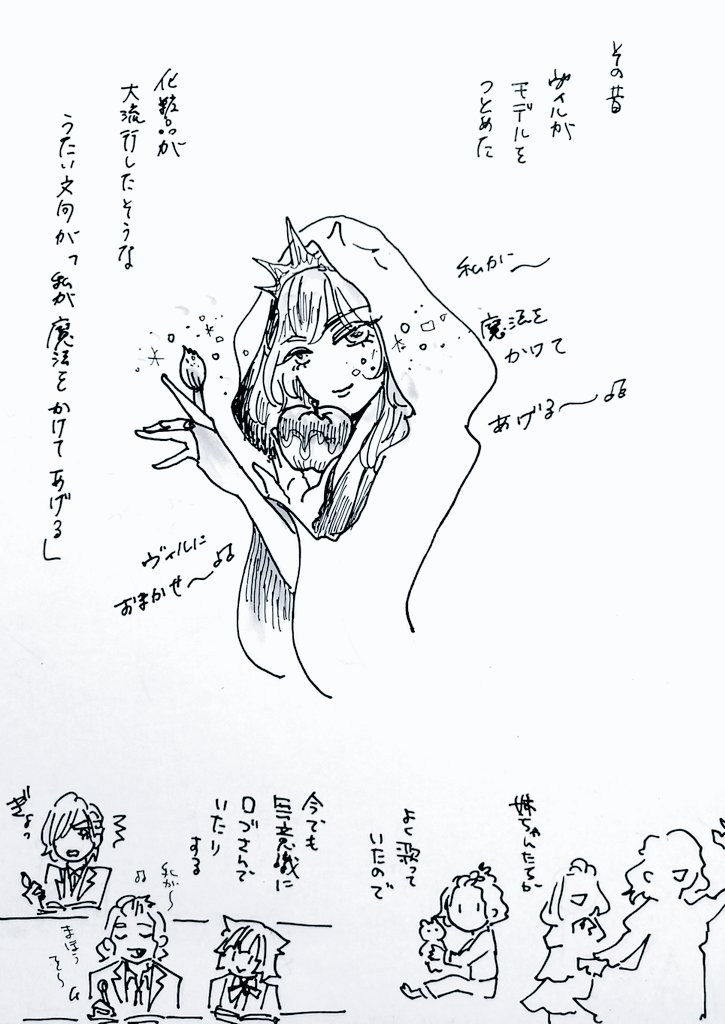 その昔
ヴィルが
モデルを
つとめた
化粧品が
大流行したそうな
うたい文句が「私が魔法をかけてあげる」
私が〜
魔法を
かけて
あげる〜♫
ヴィルに
おまかせ〜♫
姉ちゃんたちが
よく歌って
いたので
今でも
無意識に
口ずさんで
いたり
する
ぎょっ
私が〜
まほう
を〜